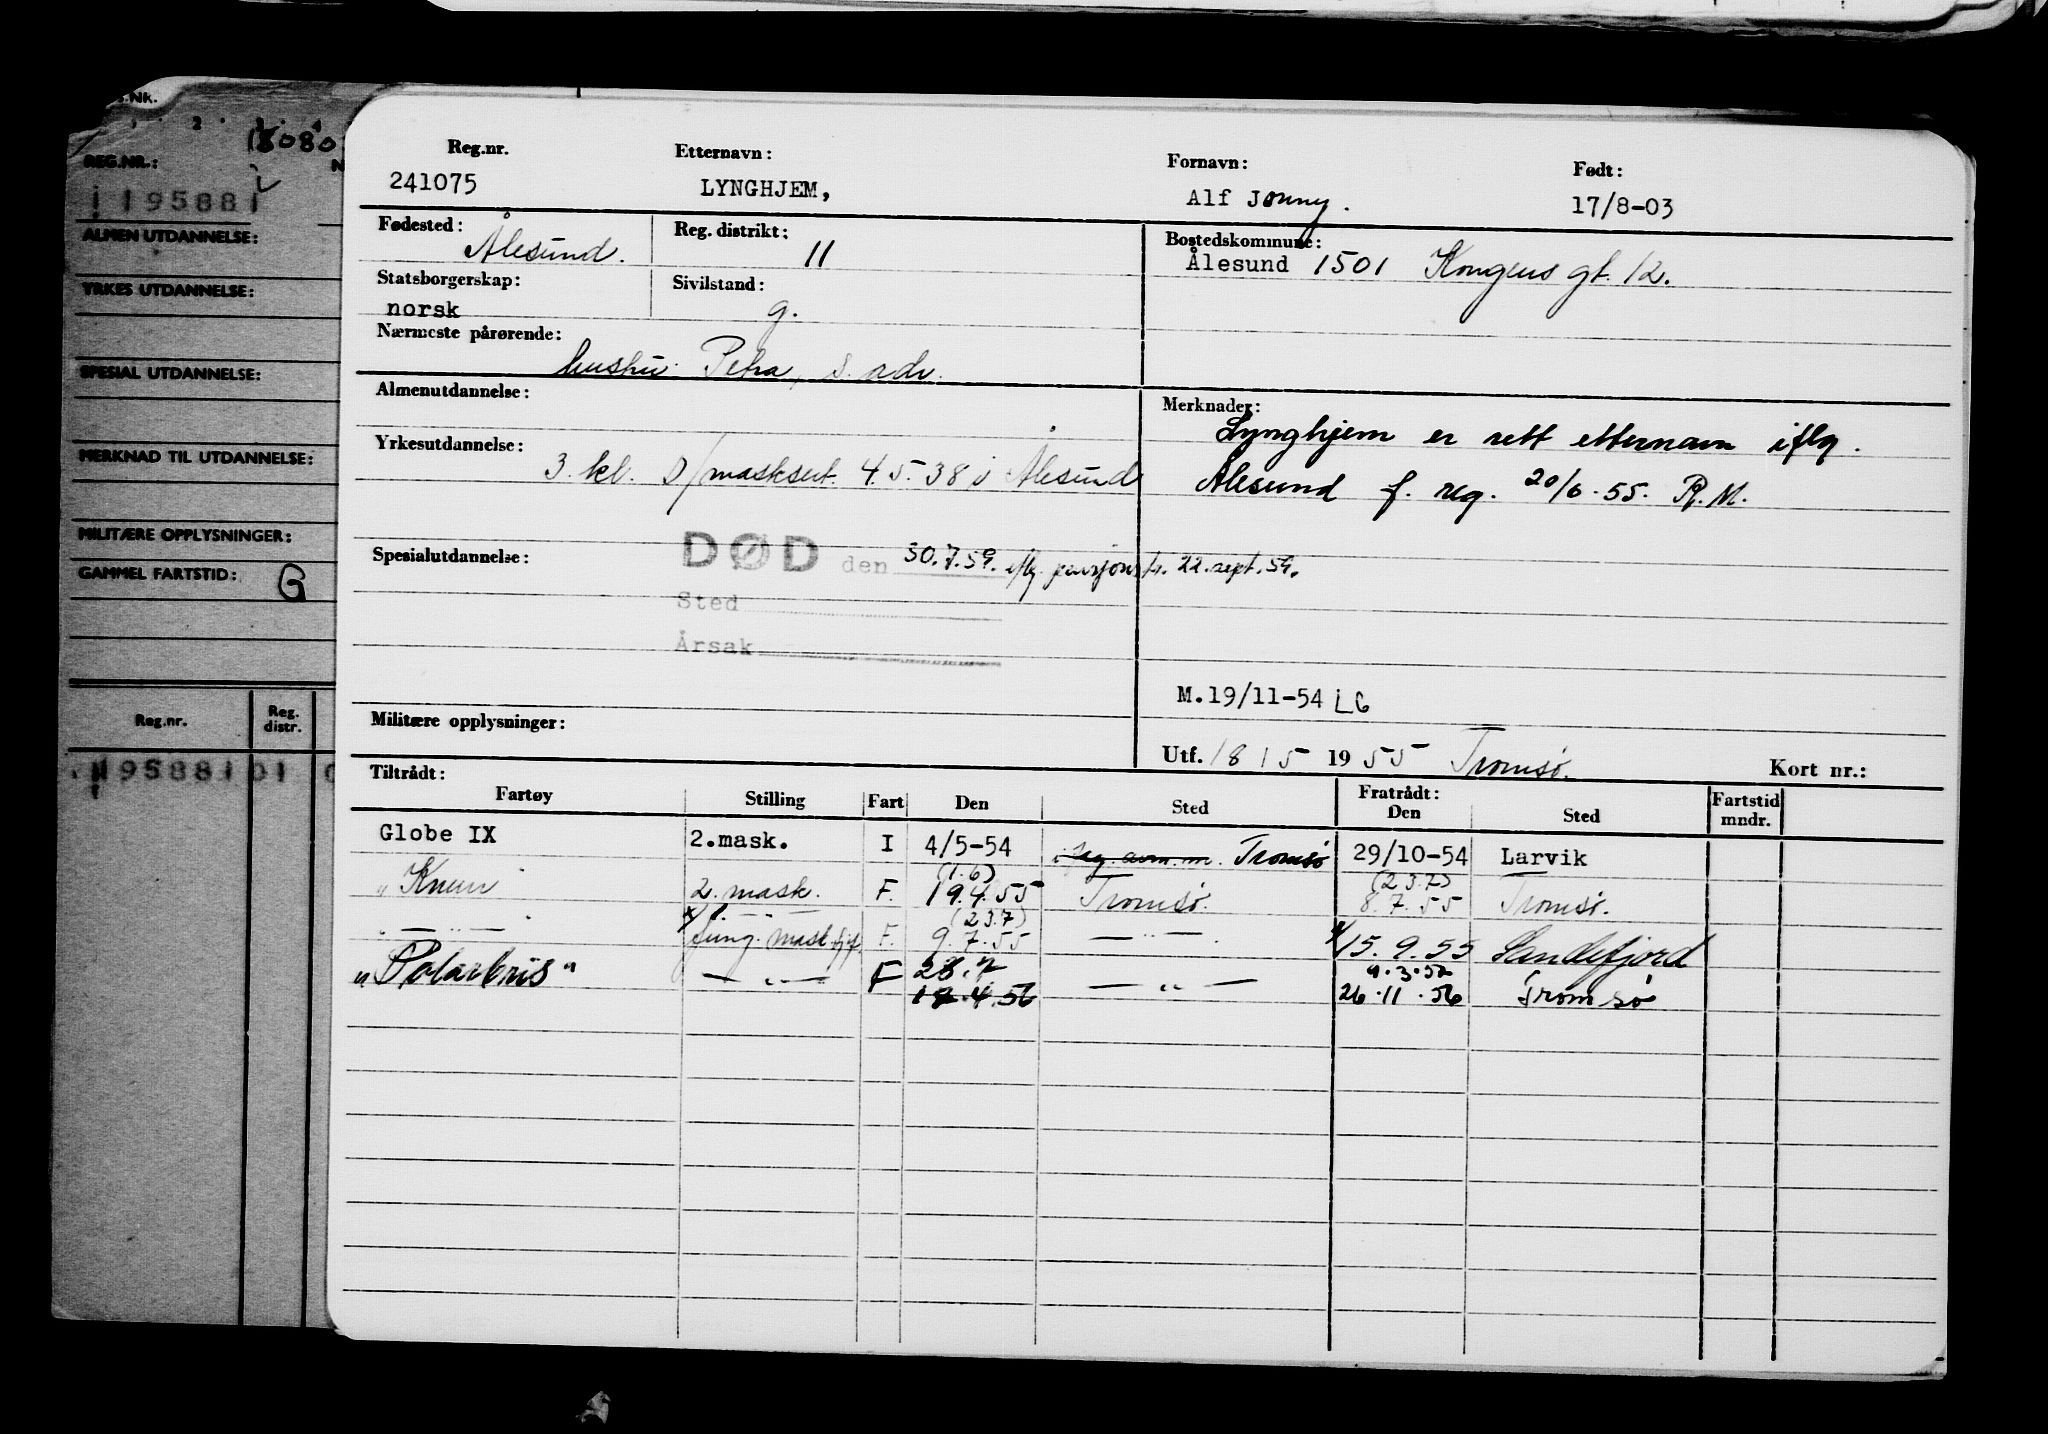 S.Nk.
2
18080
REG.NR.:
195881
ALMEN UTDANNELSE:
YRKES UTDANNELSE:
SPESIAL UTDANNELSE:
MERKNAD TIL UTDANNELSE:
MILITÆRE OPPLYSNINGER:
GAMMEL FARTSTID: G
Reg.nr. Reg. distr.
195881 01
Reg.nr. Etternavn: Fornavn: Født:
241075 LYNGHJEM, Alf Jonny. 17/8-03
Fødested: Ålesund. Reg. distrikt: 11 Bostedskommune:
Ålesund 1501 Kongens gt. 12.
Statsborgerskap: Sivilstand:
norsk g.
Nærmeste pårørende:
hustru Petra, s. adr.
Almenutdannelse: Merknader:
Lynghjem er rett etternavn iflg.
Yrkesutdannelse:
3. kl. D/masksert. 4.5.38 i Ålesund
Ålesund f. reg. 20/6.55. R.M.
Spesialutdannelse: DØD den 30.7.59. iflg. pensjonstr. 22.sept.59.
Sted
Årsak
M.19/11-54 LG
Militære opplysninger:
Utf. 18/5 1955 Tromsø. Kort nr.:
Tiltrådt: Fratrådt:
Fartøy Stilling Fart Den Sted Den Sted Fartstid mndr.
Globe IX 2.mask. I 4/5-54 Tromsø 29/10-54 Larvik
(1.6) (23.7)
" Knurr " 2. mask. F. 19.4.55 Tromsø. 8.7.55 Tromsø.
(23.7)
— " — F. 9.7.55 — " — 15.9.55 Sandefjord
"Polarbris" — " — F 28.7 — " — 9.3.52
17.4.56 26.11.56 Tromsø